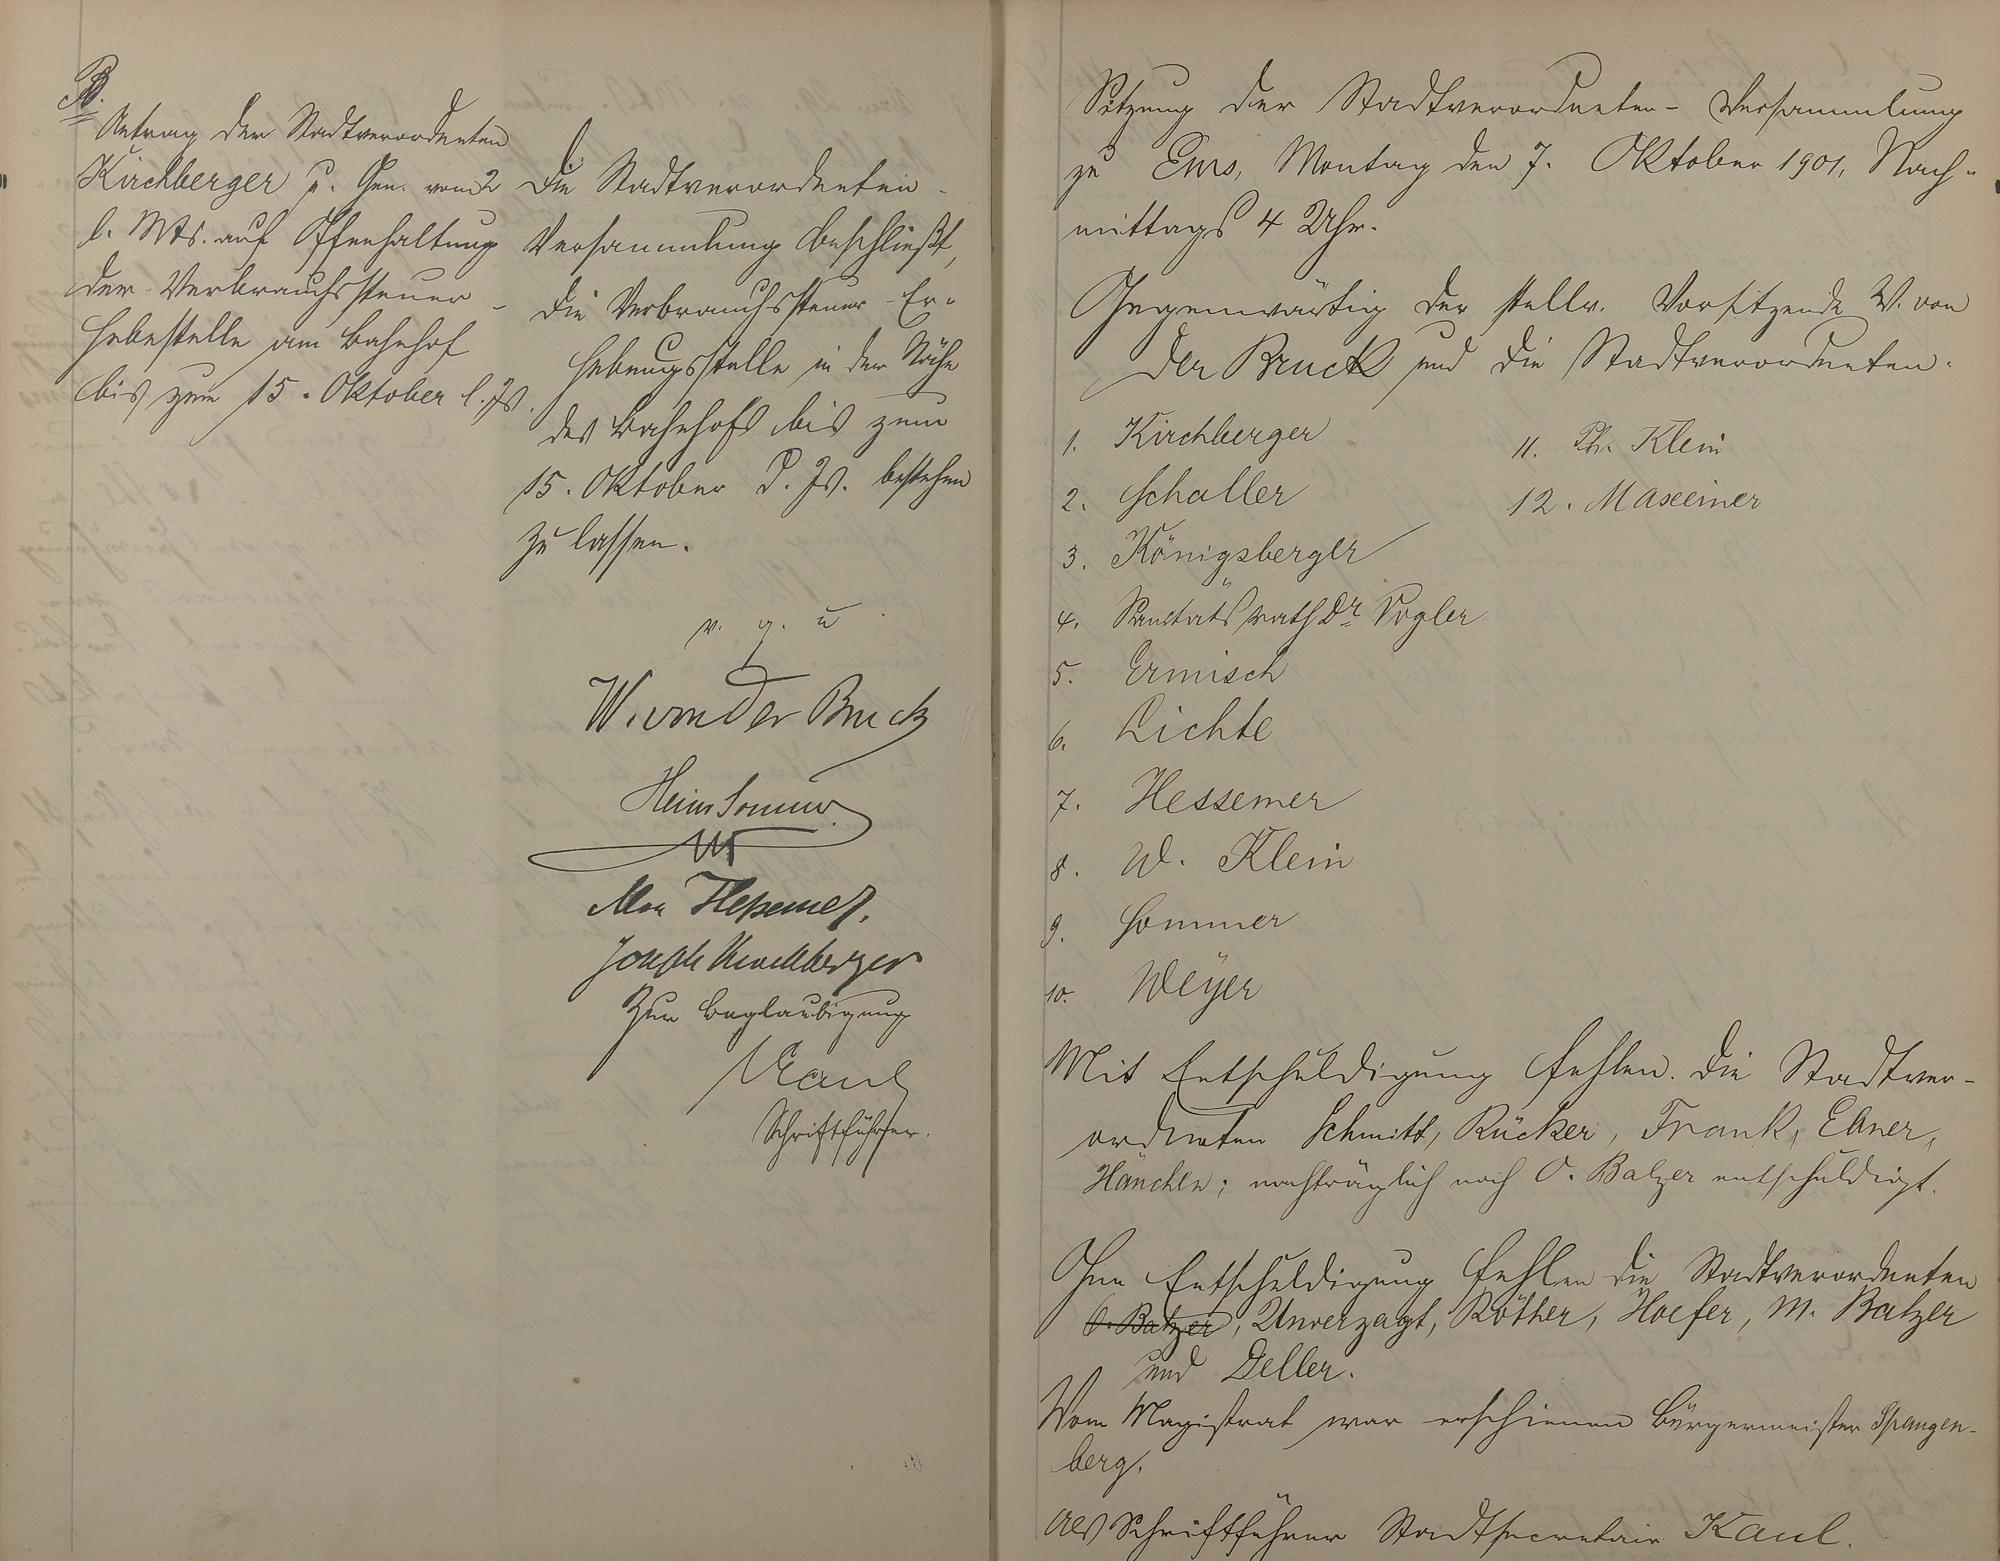 B.
Antrag der Stadtverordneten
Kirchberger u. Gen. vom 2
l. Mts. auf Offenhaltung
der Verbrauchssteuer-
Hebestelle am Bahnhof
bis zum 15. Oktober l. Js.
Die Stadtverordneten-
Versammlung beschließt,
die Verbrauchssteuer-Er-
hebungsstelle in der Nähe
des Bahnhofs bis zum
15. Oktober d. Js. bestehen
zu lassen.
v. g. u
W. von der Bruck
Heinr Sommer
Max Hessemer.
Joseph Kirchberger
Zur Beglaubigung
Kaul
Schriftführer.
Sitzung der Stadtverordneten-Versammlung
zu Ems, Montag den 7. Oktober 1901, Nach-
mittags 4 Uhr.
Gegenwärtig der stellv. Vorsitzende W. von
der Bruck und die Stadtverordneten:
1. Kirchberger
2. Schaller
3. Königsberger
4. Sanitätsrath Dr. Vogler
5. Ermisch
6. Lichte
7. Hessemer
8. W. Klein
9. Sommer
10. Weyer
11. Ph. Klein
12. Maxeiner
Mit Entschuldigung fehlen die Stadtver-
ordneten Schmitt, Rücker, Frank, Ebner,
Hänchen; nachträglich noch O. Balzer entschuldigt.
Ohne Entschuldigung fehlen die Stadtverordneten
O. Balzer, Unverzagt, Röther, Hoefer, M. Balzer
und Deller.
Vom Magistrat war erschienen Bürgermeister Spangen-
berg.
Als Schriftführer Stadtsecretair Kaul.